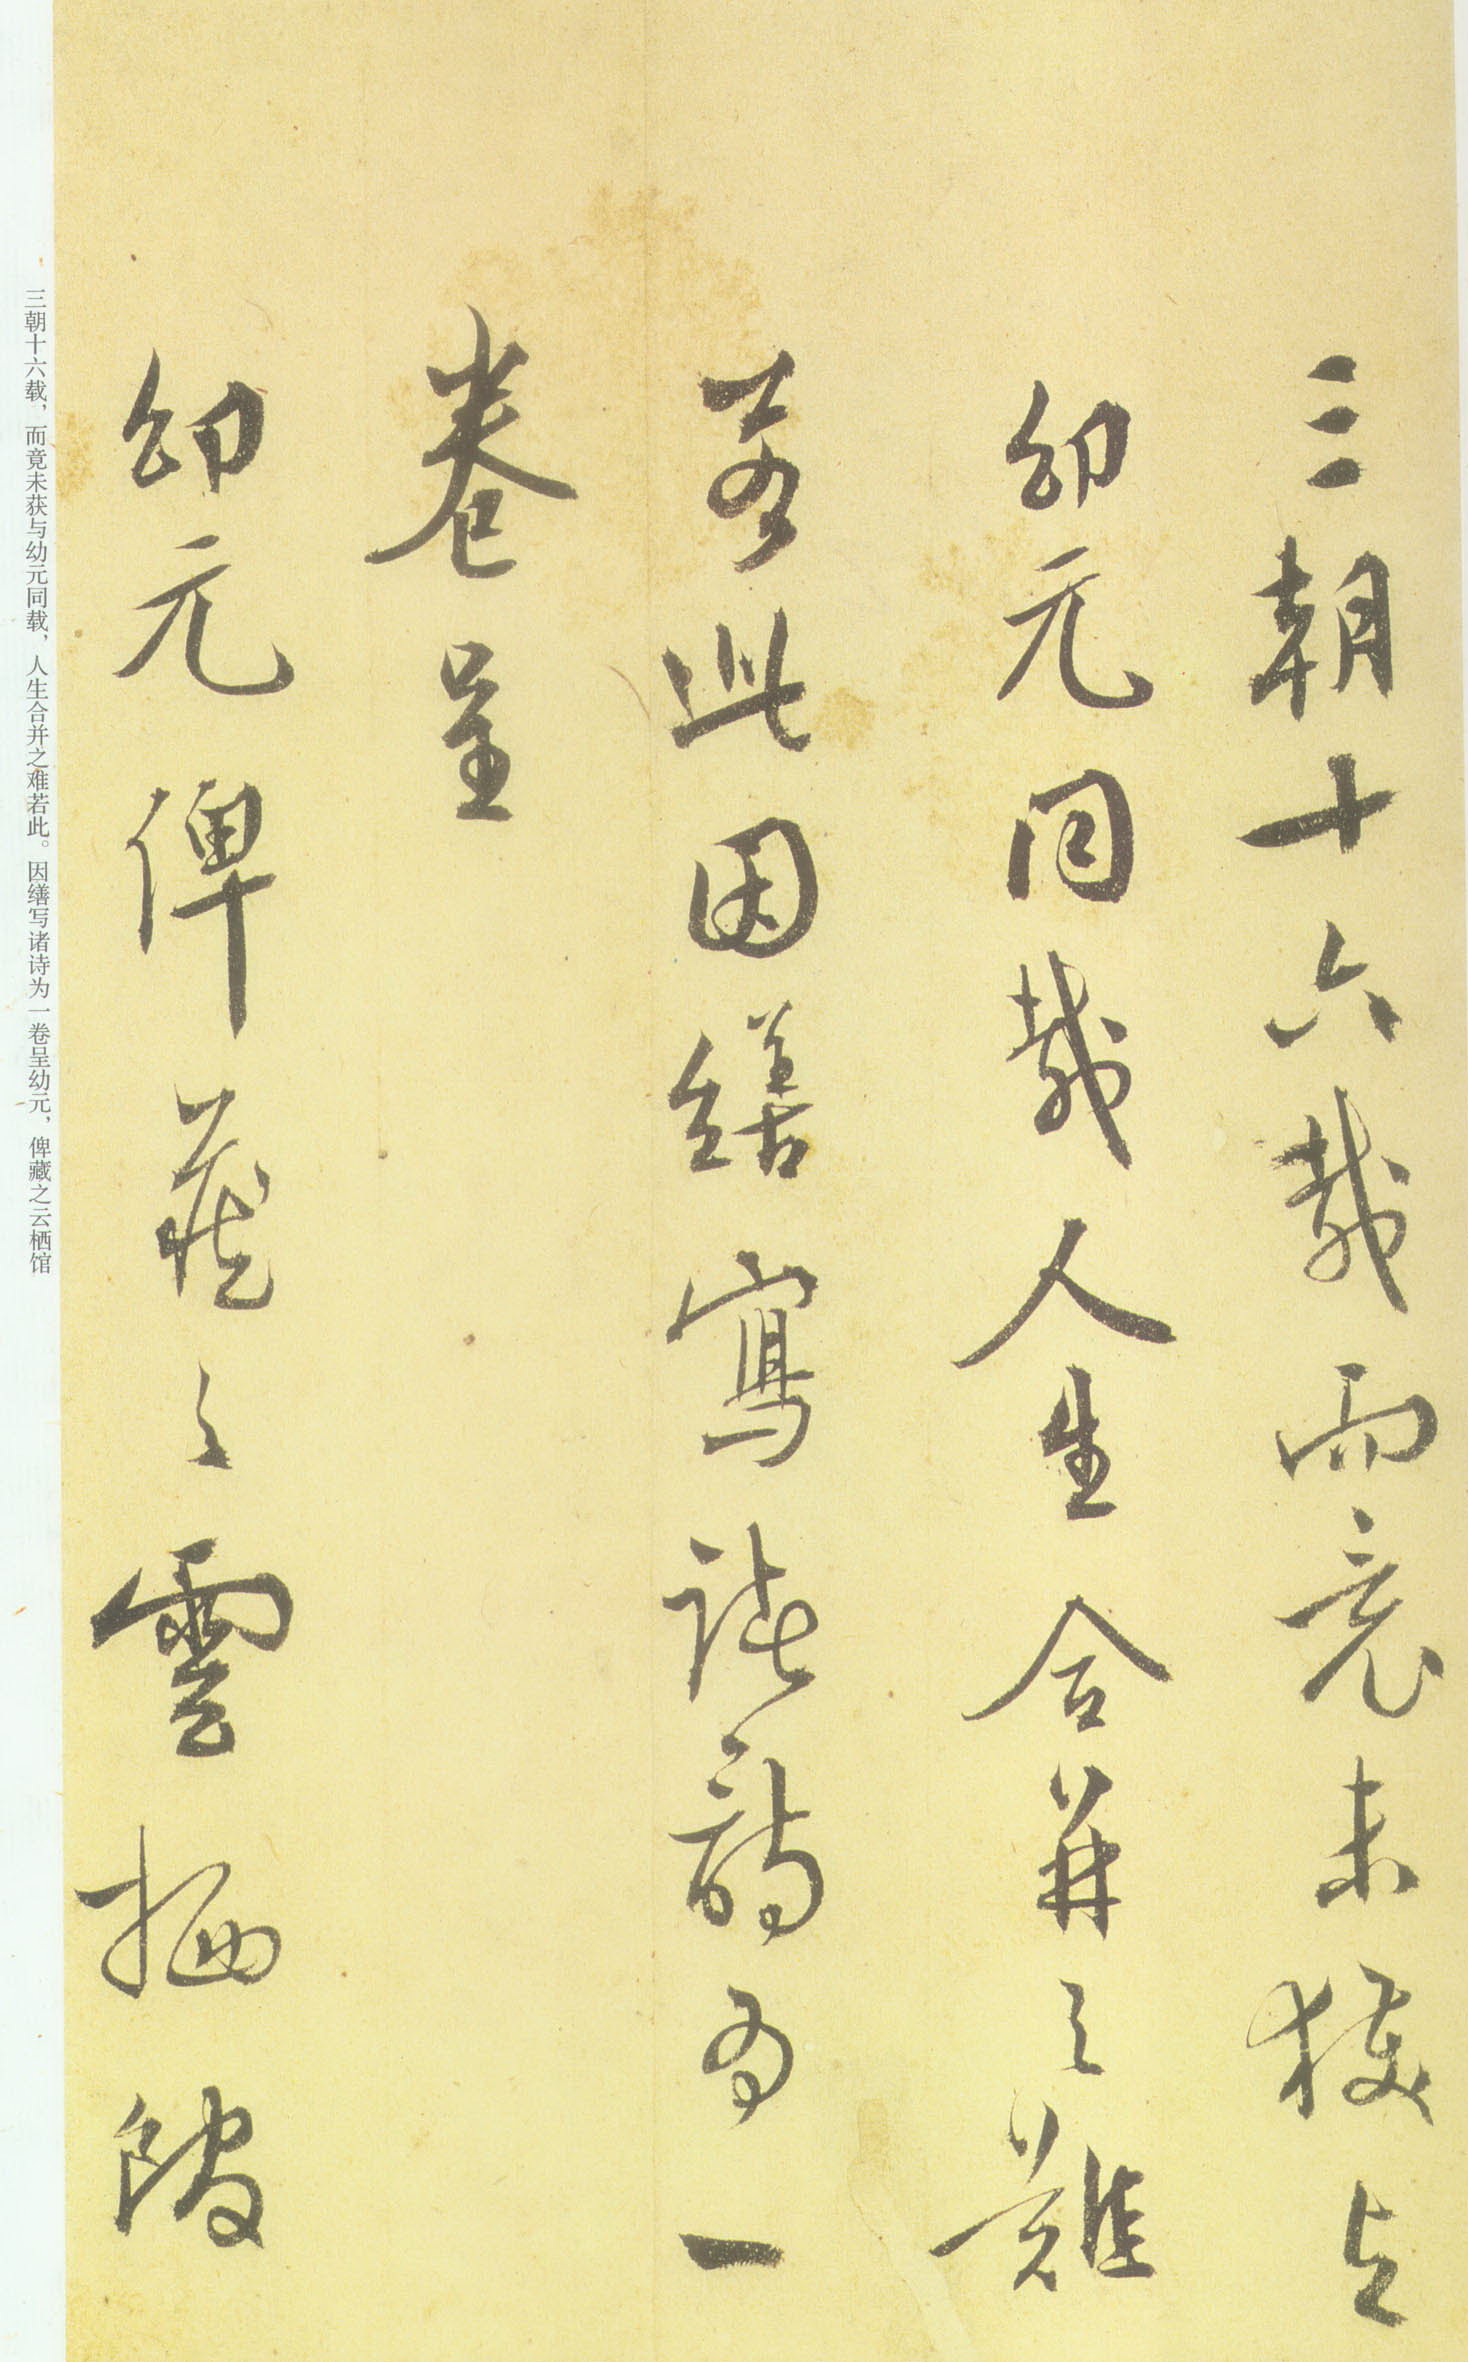 三朝十六載而竟未獲与
幼元同載人生合并之難
若此因繕寫諸詩為一
卷呈
幼元俾藏之雲栖館
三朝十六载，而竟未获与幼元同载，人生合并之难若此。因缮写诸诗为一卷呈幼元，俾藏之云栖馆